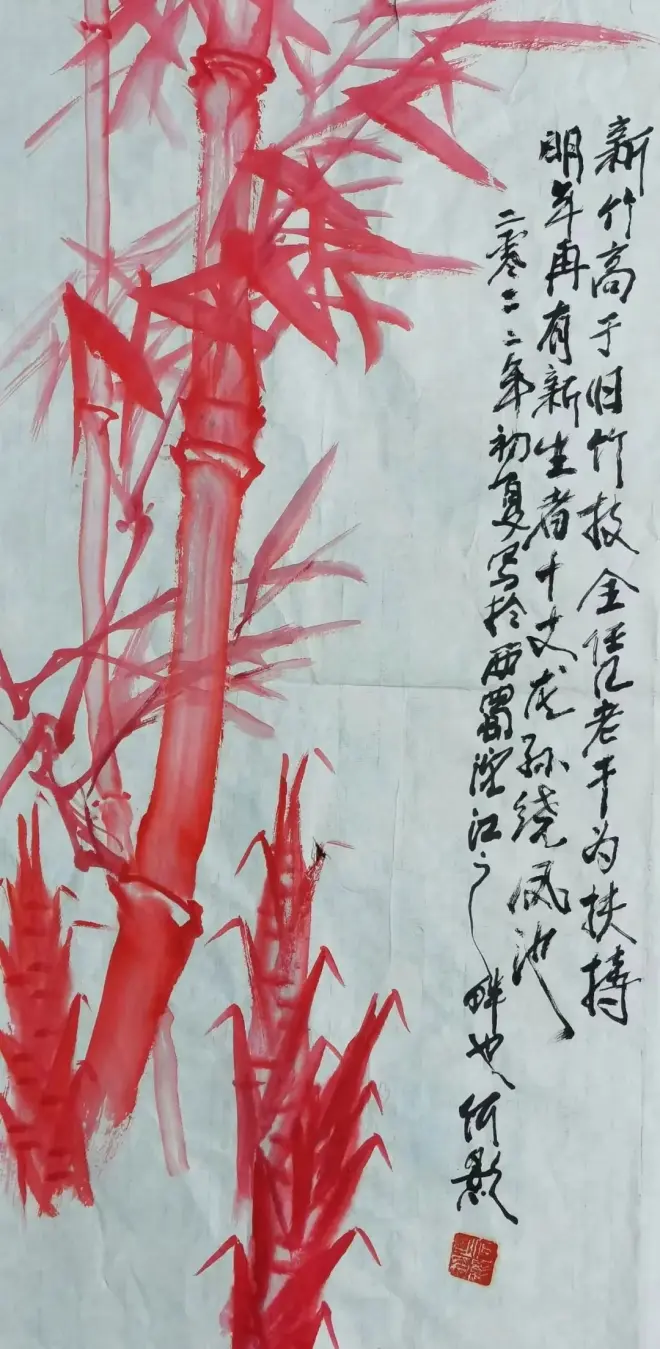 新竹高于旧竹枝全凭老干为扶持
明年再有新生者十丈龙孙绕凤池
二零二二年初夏写于西蜀沱江之畔也何影